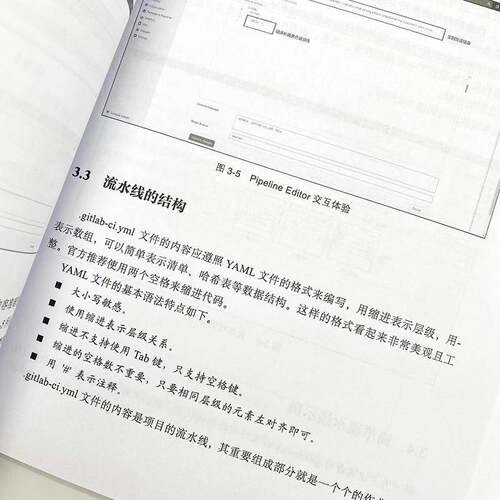 图 3-5 Pipeline Editor 交互体验
3.3 流水线的结构
.gitlab-ci.yml 文件的内容应遵照 YAML 文件的格式来编写，用缩进表示层级，用-
表示数组，可以简单表示清单、哈希表等数据结构。这样的格式看起来非常美观且工
整。官方推荐使用两个空格来缩进代码。
YAML 文件的基本语法特点如下。
■ 大小写敏感。
■ 使用缩进表示层级关系。
■ 缩进不支持使用 Tab 键，只支持空格键。
■ 缩进的空格数不重要，只要相同层级的元素左对齐即可。
■ 用 '#' 表示注释。
.gitlab-ci.yml 文件的内容是项目的流水线，其重要组成部分就是一个个的作